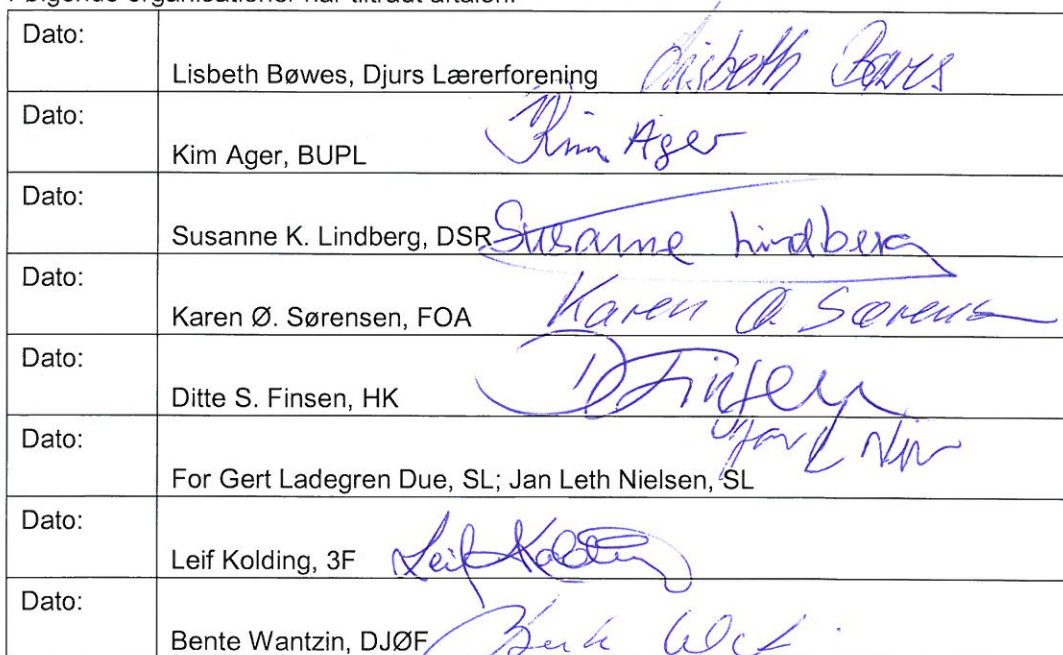 Følgende organisationer har tiltrådt aftalen:
Dato:
Lisbeth Bøwes, Djurs Lærerforening Lisbeth Bøwes
Dato:
Kim Ager, BUPL Kim Ager
Dato:
Susanne K. Lindberg, DSR Susanne Lindberg
Dato:
Karen Ø. Sørensen, FOA Karen Ø. Sørensen
Dato:
Ditte S. Finsen, HK D Finsen
Dato:
For Gert Ladegren Due, SL; Jan Leth Nielsen, SL
Dato:
Leif Kolding, 3F Leif Kolding
Dato:
Bente Wantzin, DJØF